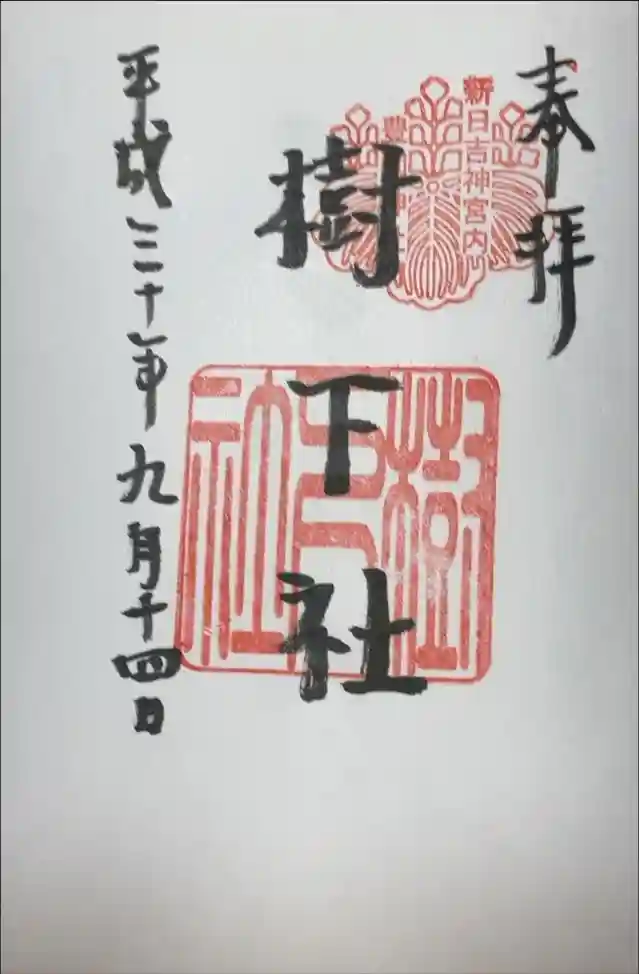 奉拝
新日吉神宮内
豊国神社
樹下社
樹下社
平成三十年九月十四日